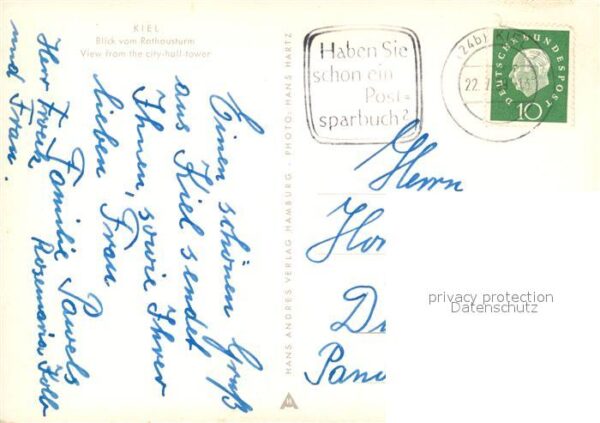 KIEL
Blick vom Rathausturm
View from the city-hall-tower
Einen schönen Gruß
aus Kiel sendet
Ihnen, sowie Ihrer
lieben Frau
Familie Pawels
Rosemaria Kolb
Herr
und Frau.
HANS ANDRES VERLAG HAMBURG · PHOTO: HANS HARTZ
Haben Sie
schon ein
Post=
sparbuch?
(24b) KIEL
22.7.
DEUTSCHE BUNDESPOST
10
Herrn
Hor
D
Pan
privacy protection
Datenschutz